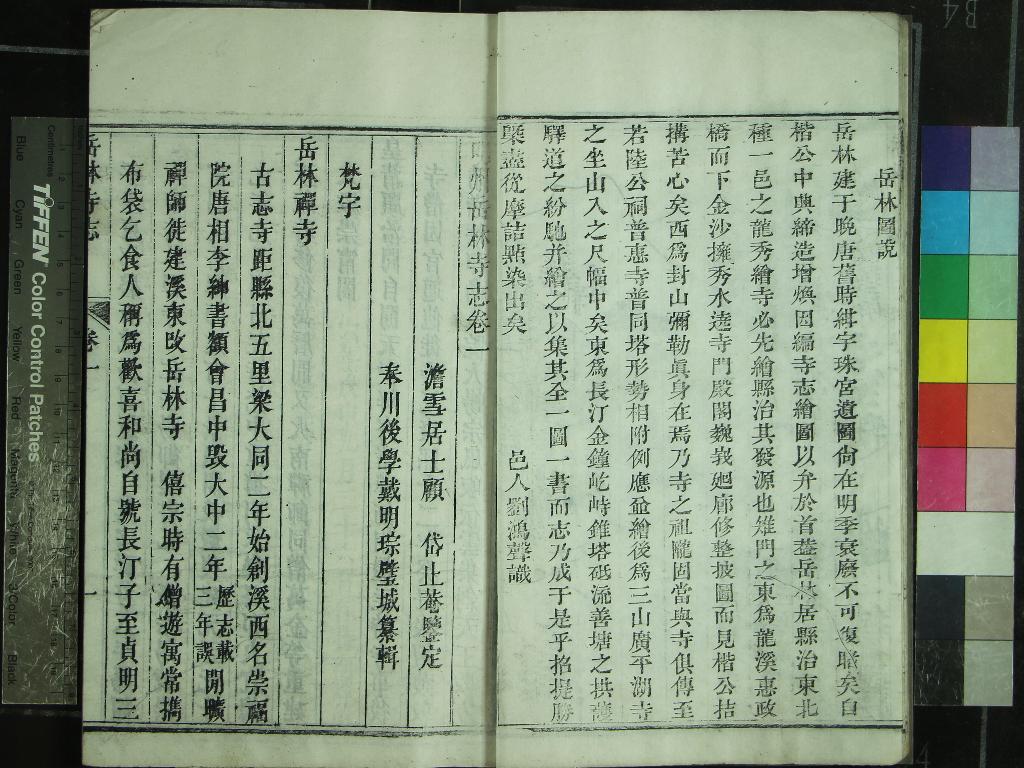 岳林圖說
岳林建于晚唐舊時紺宇珠宮遺圖尙在明季衰廢不可復職矣自
楷公中興締造增煥因編寺志繪圖以弁於首葢岳林居縣治東北
種一邑之龍秀繪寺必先繪縣治其發源也雉門之東爲龍溪惠政
橋而下金沙擁秀水遶寺門嚴閣巍峩廻廊修整披圖而見楷公拮
搆苦心矣西爲封山彌勒眞身在焉乃寺之祖隴固當與寺俱傳至
若陸公祠普惠寺普同塔形勢相附例應並繪後爲三山廣平湖寺
之坐山入之尺幅中矣東爲長汀金鐘屹峙錐塔砥流善塘之拱護
驛道之紛馳并繪之以集其全一圖一書而志乃成于是乎招提勝
槩盡從摩詰點染出矣
邑人劉鴻聲識
岳林寺志卷一
澹雪居士顧 岱止菴鑒定
奉川後學戴明琮璧城纂輯
梵宇
岳林禪寺
古志寺距縣北五里梁大同二年始創溪西名崇福
院唐相李紳書額會昌中毀大中二年歷志載三年誤閒曠
禪師徙建溪東改岳林寺 僖宗時有僧遊寓常攜
布袋乞食人稱爲歡喜和尚自號長汀子至貞明三
岳林寺志
卷一
一
Centimetres
TIFFEN Color Control Patches
Blue
Cyan
Green
Yellow
Red
Magenta
White
3/Color
Black
B4
4